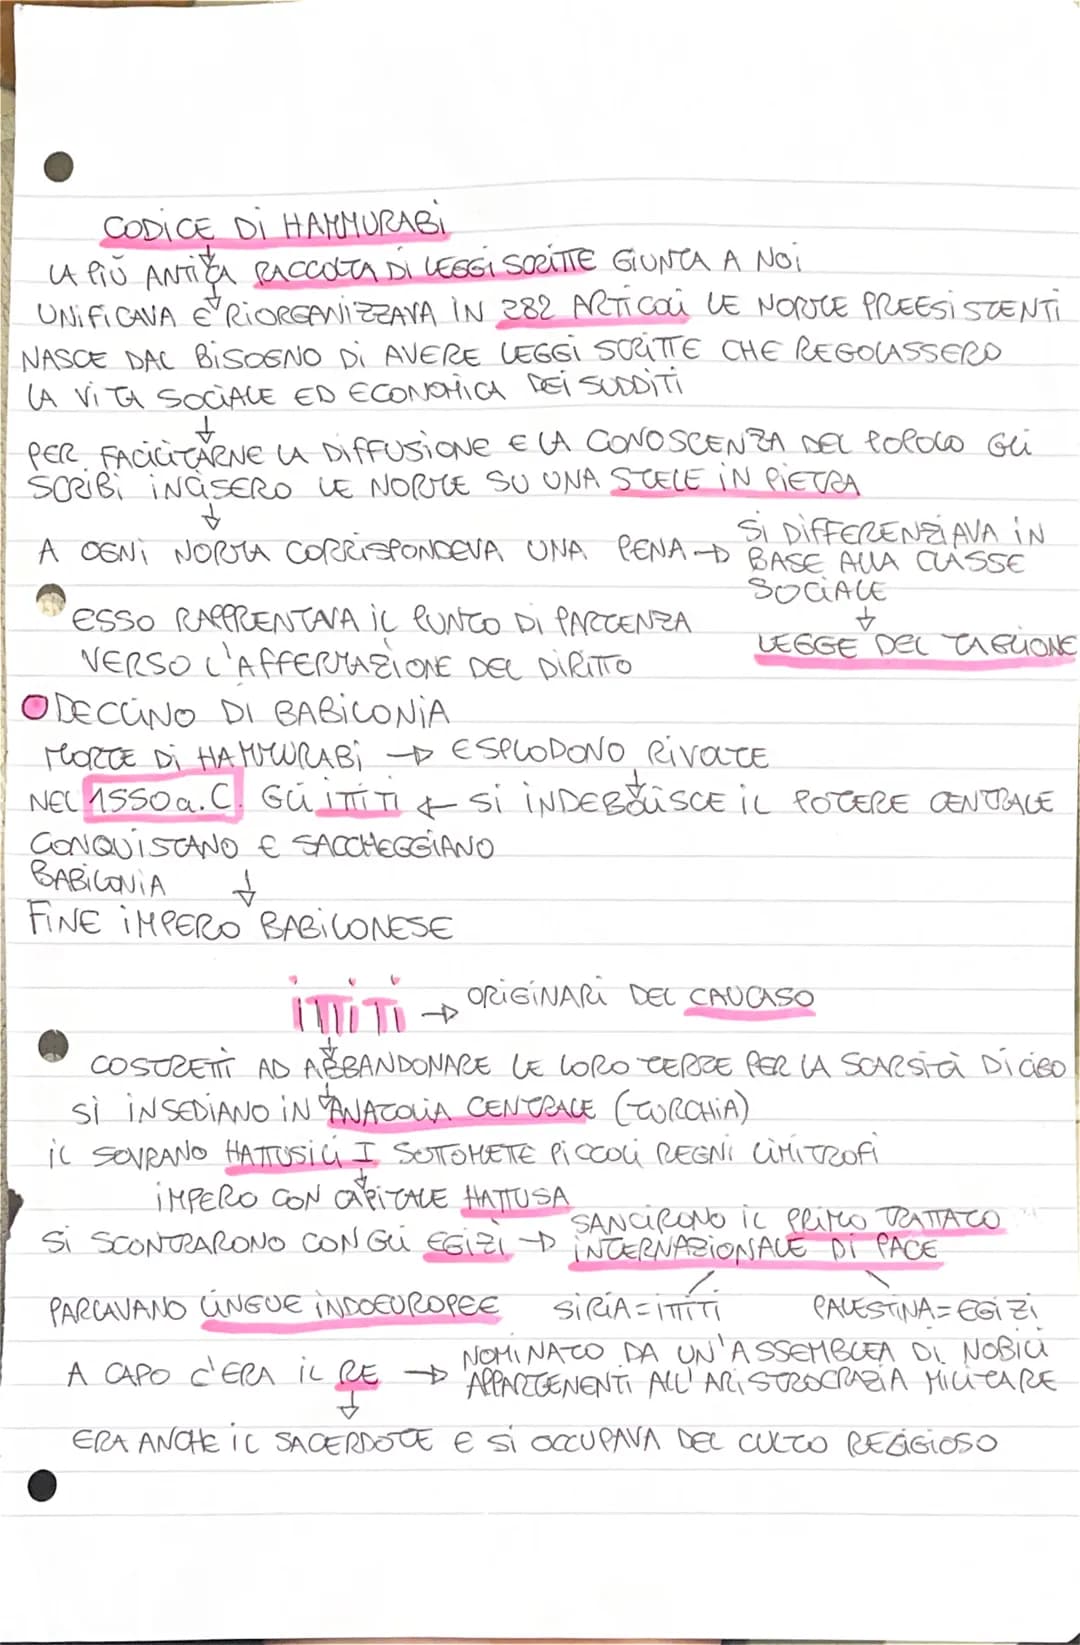 CODICE DI HAMMURABI
LA PIÙ ANTICA RACCOLTA DI LEGGI SCRITTE GIUNTA A NOI
UNIFICAVA E RIORGANIZZAVA IN 282 ARTICOLI LE NORME PREESISTENTI
NASCE DAL BISOGNO DI AVERE LEGGI SCRITTE CHE REGOLASSERO
LA VITA SOCIALE ED ECONOMICA DEI SUDDITI
↓
PER FACILITARNE LA DIFFUSIONE E LA CONOSCENZA DEL POPOLO GLI
SCRIBI INCISERO LE NORME SU UNA STELE IN PIETRA
↓
A OGNI NORMA CORRISPONDEVA UNA PENA → SI DIFFERENZIAVA IN
BASE ALLA CLASSE
SOCIALE
↓
LEGGE DEL TAGLIONE
ESSO RAPPRENTAVA IL PUNTO DI PARTENZA
VERSO L'AFFERMAZIONE DEL DIRITTO
DECLINO DI BABILONIA
MORTE DI HAMMURABI → ESPLODONO RIVOLTE
NEL 1550 a.C. GLI ITTITI ← SI INDEBOLISCE IL POTERE CENTRALE
CONQUISTANO E SACCHEGGIANO
BABILONIA ↓
FINE IMPERO BABILONESE
ITTITI → ORIGINARI DEL CAUCASO
COSTRETTI AD ABBANDONARE LE LORO TERRE PER LA SCARSITÀ DI CIBO
SI INSEDIANO IN ANATOLIA CENTRALE (TURCHIA)
IL SOVRANO HATTUSILI I SOTTOMETE PICCOLI REGNI LIMITROFI
IMPERO CON CAPITALE HATTUSA
SI SCONTRARONO CON GLI EGIZI → SANCIRONO IL PRIMO TRATTATO
INTERNAZIONALE DI PACE
PARLAVANO LINGUE INDOEUROPEE SIRIA = ITTITI PALESTINA = EGIZI
A CAPO C'ERA IL RE → NOMINATO DA UN'ASSEMBLEA DI NOBILI
APPARTENENTI ALL'ARISTROCRAZIA MILITARE
↓
ERA ANCHE IL SACERDOTE E SI OCCUPAVA DEL CULTO RELIGIOSO